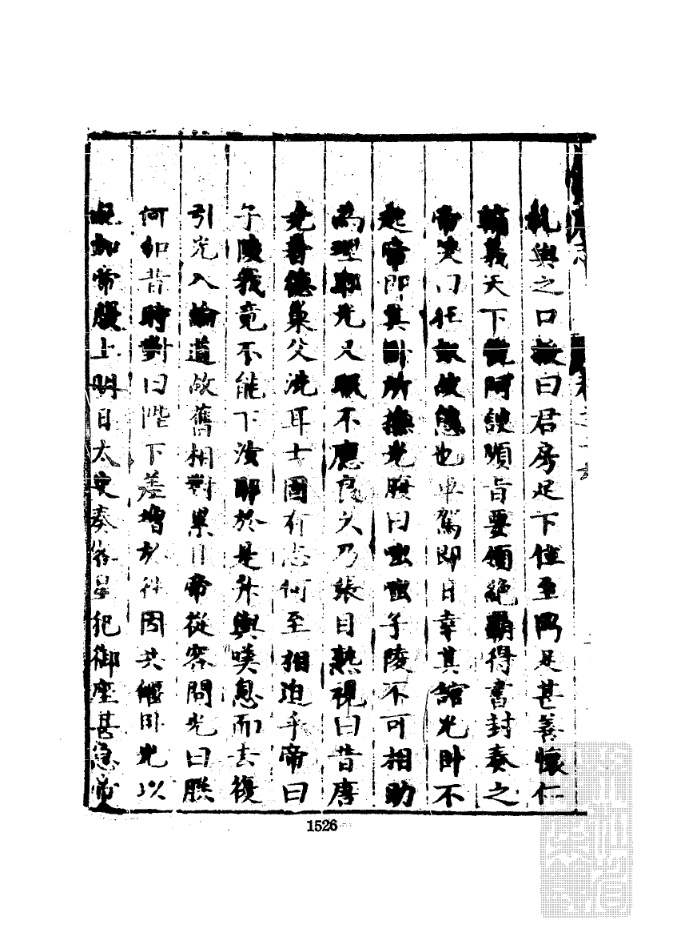 札與之口授曰君房足下位至鼎足甚善懷仁
輔義天下悅阿諛順旨要領絕霸得書封奏之
帝笑曰狂奴故態也車駕即日幸其館光卧不
起帝即其卧所撫光腹曰咄咄子陵不可相助
為理耶光又眠不應良久乃張目熟視曰昔唐
堯著德巢父洗耳士固有志何至相迫乎帝曰
子陵我竟不能下汝耶於是升輿嘆息而去復
引光入論道故舊相對累日帝從容問光曰朕
何如昔時對曰陛下差增於徃因共偃卧光以
足加帝腹上明日太史奏客星犯御座甚急帝
1526